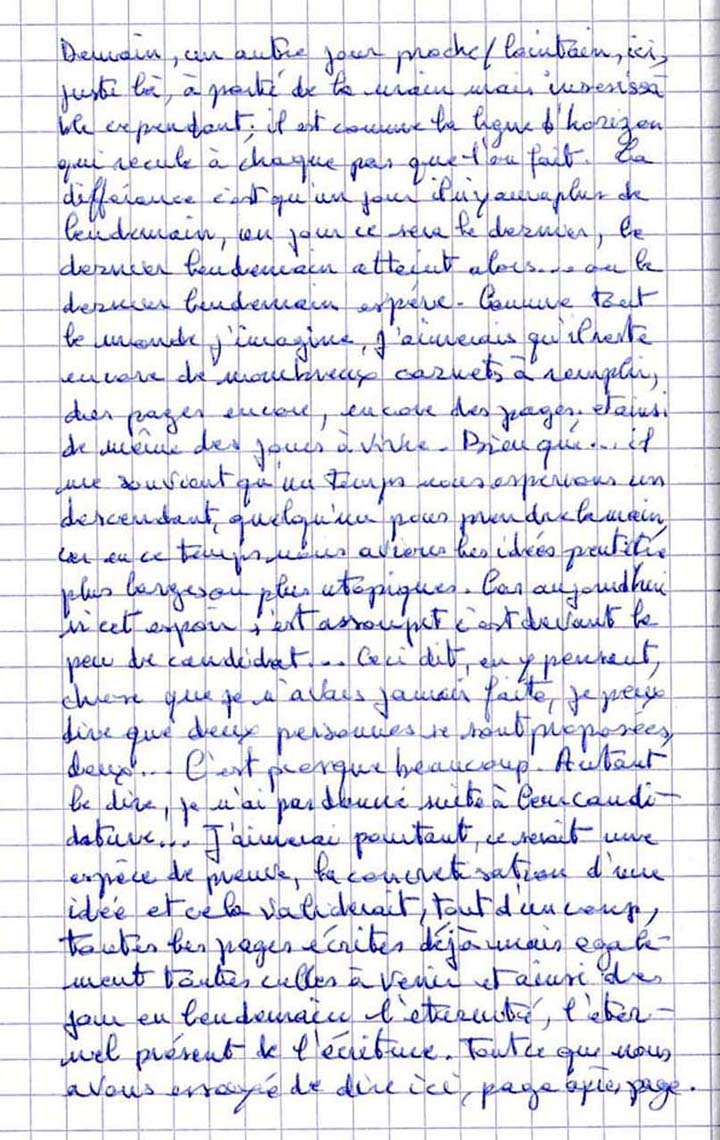 Demain, un autre jour proche/lointain, ici,
juste là, à porté de la main mais insaisissa
ble cependant; il est comme la ligne d'horizon
qui recule à chaque pas que l'on fait. La
différence c'est qu'un jour il n'y aura plus de
lendemain, un jour ce sera le dernier, le
dernier lendemain atteint alors... ou le
dernier lendemain espéré. Comme tout
le monde j'imagine, j'aimerais qu'il reste
encore de nombreux carnets à remplir,
des pages encore, encore des pages, et ainsi
de même des jours à vivre. Bien que... il
me souvient qu'un temps nous espérions un
descendant, quelqu'un pour prendre la main,
car en ce temps nous avions les idées peut être
plus larges ou plus utopiques. Car aujourd'hui
si cet espoir s'est assoupit c'est devant le
peu de candidat... Ceci dit, en y pensant,
chose que je n'avais jamais faite, je peux
dire que deux personnes se sont proposées,
deux... C'est presque beaucoup. Autant
le dire, je n'ai pas donné suite à leur candi-
dature... J'aimerai pourtant, ce serait une
espèce de preuve, la concrétisation d'une
idée et cela validerait, tout d'un coup,
toutes les pages écrites déjà mais égale-
ment toutes celles à venir et ainsi de
jour en lendemain l'éternité, l'éter-
nel présent de l'écriture. Tout ce que nous
avons essayé de dire ici, page après page.